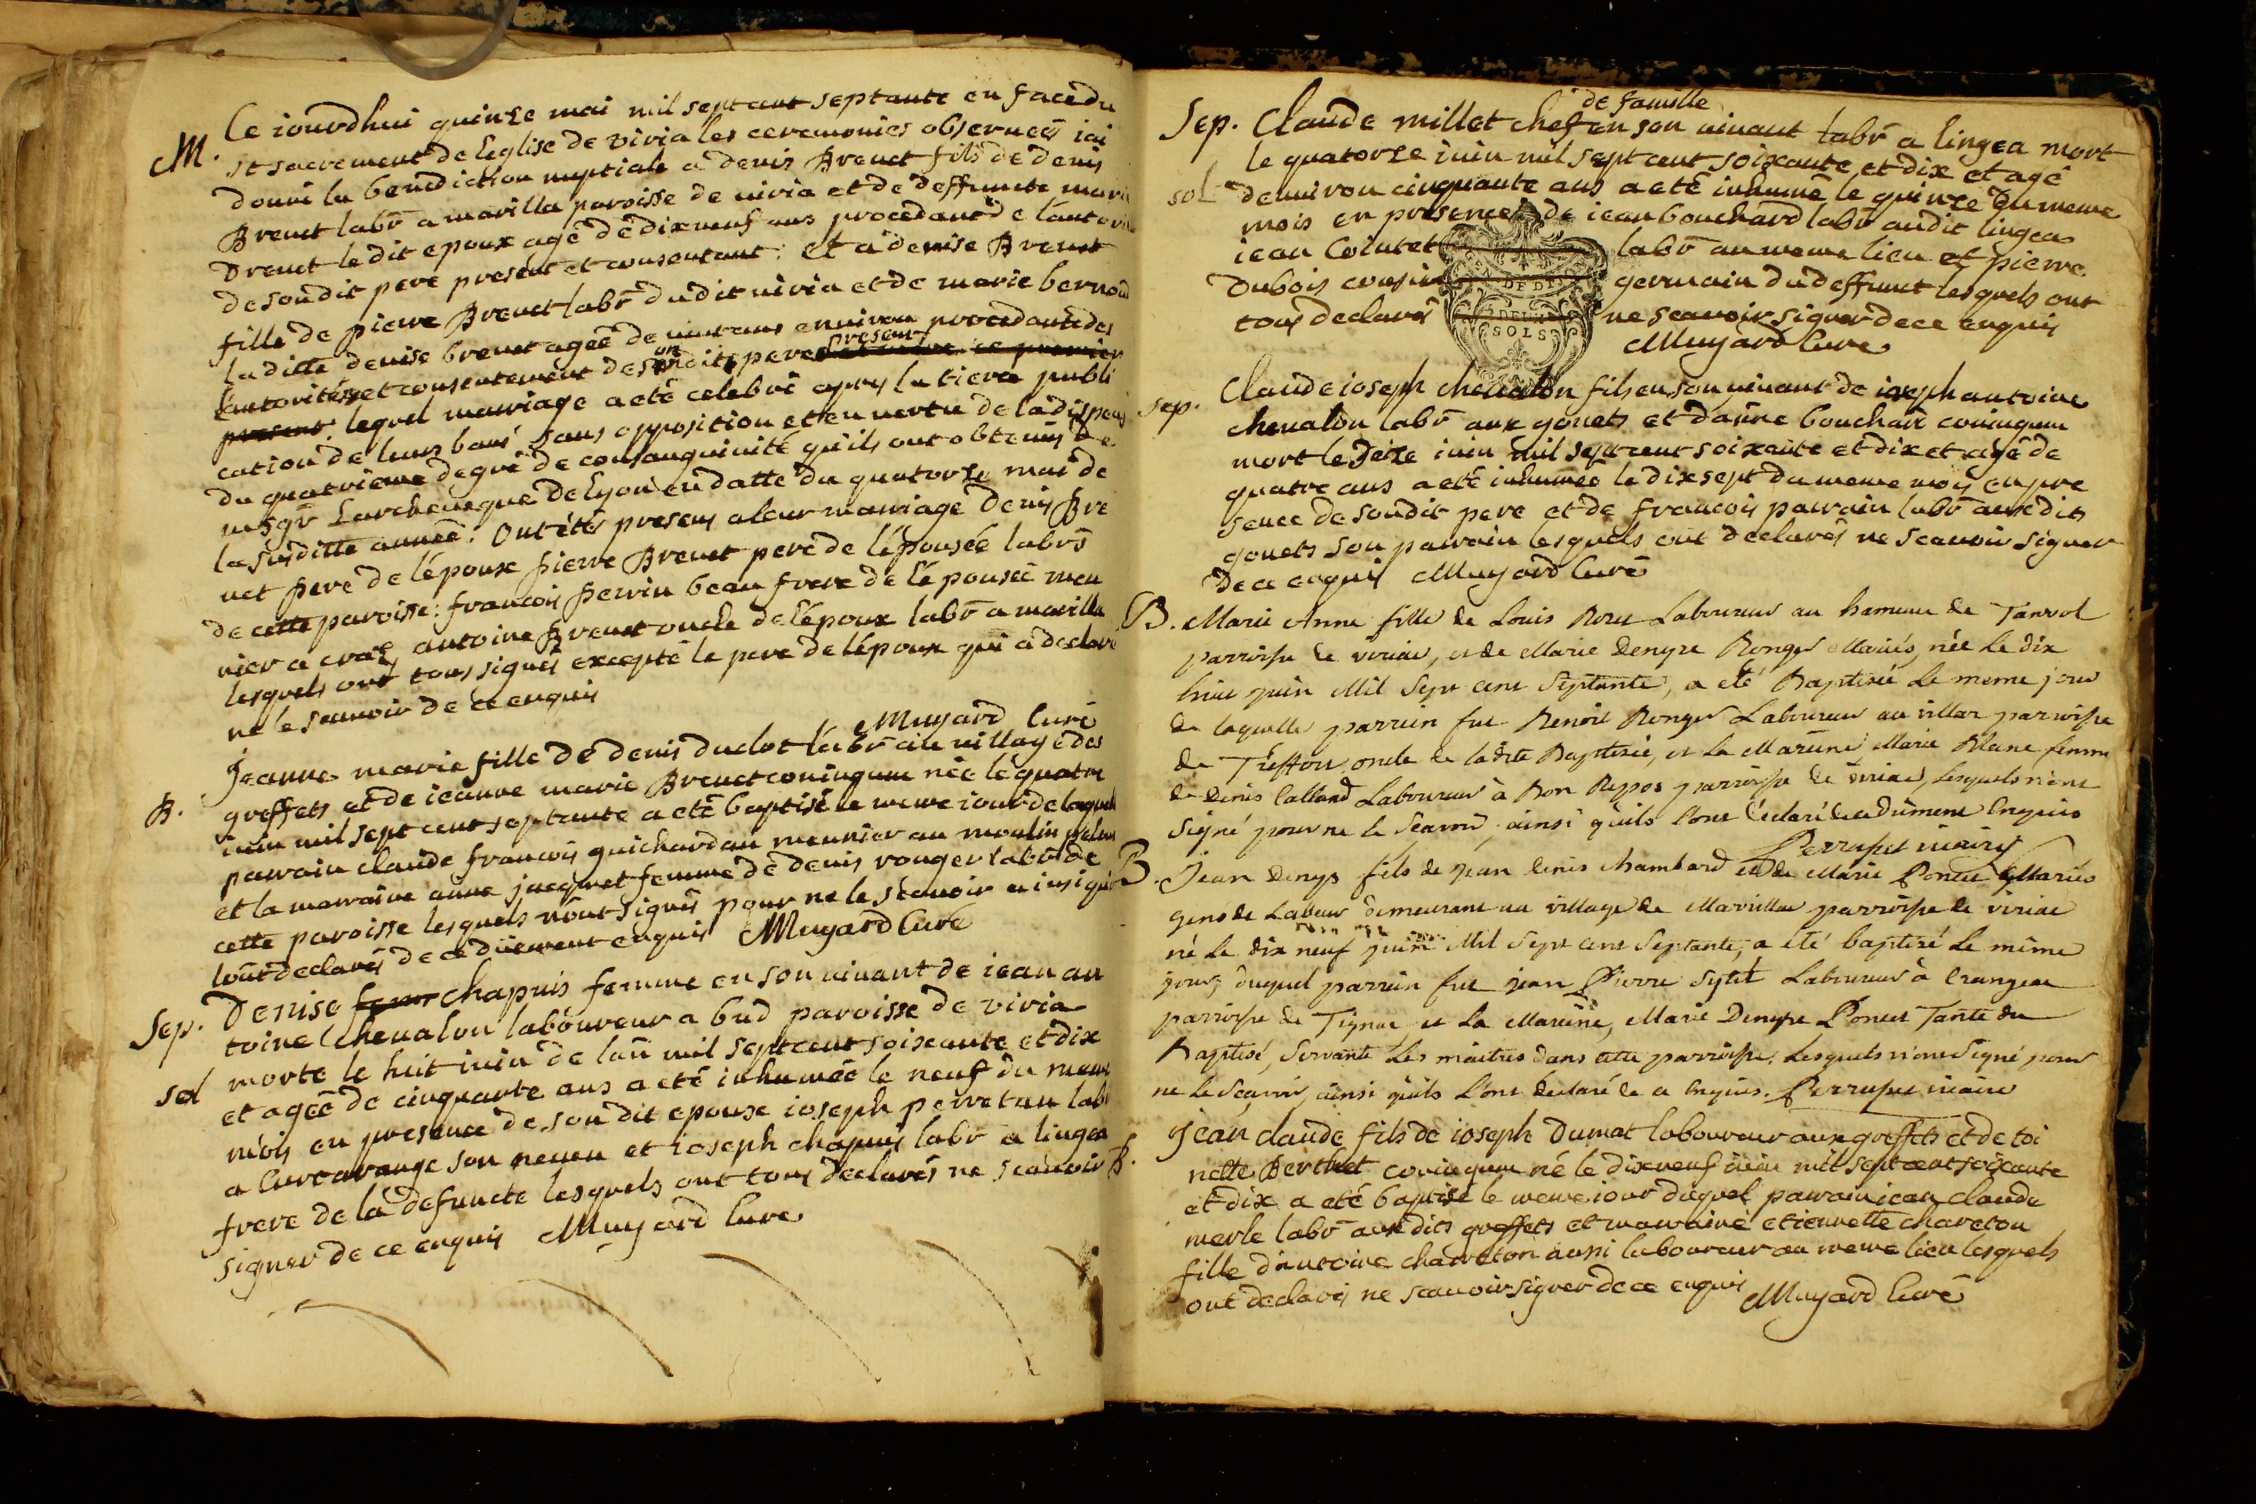 M. Ce iourdhui quinze mai mil septant septante en face du
st sacrement de leglise de viria les ceremonies observeés iai
donné la benediction nuptiale a denis Brevet fils de denis
Brevet labr̄ a marilla paroisse de viria et de deffuncte marie
Brevet le dit epoux agé de dixneuf ans procedant de l'autorité
de son dit pere present et consentant. et a denise Brevet
fille de pierre Brevet labr̄ du dit viria et de marie bernard
la ditte denise brevet ageé de vint ans environ procedante des
l'autorités et consentement de son dit pere present et mere ce premier
present lequel mariage a eté celebré apres la tierce publi
cation de leurs bans sans opposition et en vertu de la dispense
du quatrieme degré de consanguinité qu'ils ont obtenus de
msgr̄ Larcheveque de Lyon en datte du quatorze mai de
la susditte anneé: Ont étés presens a leur mariage Denis Bre
vet pere de l'époux pierre Brevet pere de l'épouseé labrs̄
de cette paroisse: francois perrin beau frere de l'épouseé meu
nier a craz antoine Brevet oncle de l'époux labr̄ a marilla
lesquels ont tous signés excepté le pere de l'époux qui a declaré
ne le scavoir de ce enquis
Muyard Curé
B. Jeanne marie fille de denis duclot labr̄ au village des
greffets et de ieanne marie Brevet coniugum née le quatre
iuin mil sept cent septante a eté baptisé le meme iour de laquelle
parrain claude francois guichardan meunier au moulin
et la marraine anne jacquet femme de denis rouger labr̄ de
cette paroisse lesquels n'ont signés pour ne le scavoir ainsi qu'ils
l'ont declarés de ce dûement enquis Muyard Curé
Sep. Denise femm chapuis femme en son vivant de iean an
toine Chevalon laboureur a bud paroisse de viria
sol morte le huit iuin de lan mil sept cent soixante et dix
et ageé de cinquante ans a eté inhumée le neuf du meme
mois en presence de son dit epoux ioseph perretan labr
a Curtarange son neveu et ioseph chapuis labr a lingea
frere de la defuncte lesquels ont tous declarés ne scavoir
signer de ce enquis Muyard Curé
de famille
Sep. Claude millet chef en son vivant labr̄ a lingea mort
le quatorze iuin mil sept cent soixante et dix et agé
sol denviron cinquante ans a eté inhumé le quinze du meme
mois en presence de iean bouchard labr̄ audit lingea
iean Cointet labr̄ au meme lieu et pierre
Dubois cousin germain du deffunct lesquels ont
tous declarés ne scavoir signer de ce enquis
DEUX
SOLS
Muyard Curé
Sep. Claude ioseph chevalon fils en son vivant de ioseph antoine
chevalon labr̄ aux gonets et d'anne bouchard coniugum
mort le seize iuin mil sept cent soixante et dix et agé de
quatre ans a eté inhumée le dix sept du meme mois en pre
sence de son dit pere et de francois parrain labr̄ aux dits
gonets son parrain lesquels ont declarés ne scavoir signer
de ce enquis Muyard Curé
B. Marie Anne fille de Louis Laboureur au hameau de Tanvol
parroisse de viriac, et de Marie Denyse Ronger Mariés, née le dix
huit juin Mil Sept cent Septante, a eté Baptisée le meme jour
de laquelle parrein fut Benoit Ronger Laboureur au villar parroisse
de Treffort, oncle de ladite Baptisée, et la Mareine Marie Blanc femme
de Denis Calland Laboureur à Bon Repos parroisse de viriac, Lesquels n'ont
signé pour ne le Scavoir, ainsi qu'ils l'ont déclaré de ce dûment Enquis
Perruset vicaire
B. Jean denys fils de Jean Denis Chambard et de Marie Poncet Mariés
gens de Labeur demeurant au village de Marvillac parroisse de viriac
né le dix neuf juin Mil Sept cent Septante, a été baptisé Le même
jour, duquel parrein fut jean Pierre Sytet Laboureur à Crangeac
parroisse de Tignac et la Mareine, Marie Denyse Poncet Tante du
Baptisé, Servante Les maitres dans cette parroisse. Lesquels n'ont Signé pour
ne Le Scavoir, ainsi qu'ils l'ont declaré de ce Enquis. Perruset vicaire
B. Jean claude fils de ioseph Dumat laboureur aux greffets et de toi
nette Berthet coniugum né le dixneuf iuin mil sept cent soixante
et dix a eté baptisé le meme iour duquel parrain iean claude
merle labr̄ aux dits greffets et marraine etiennette chareton
fille d'antoine chareton aussi laboureur au meme lieu lesquels
ont declarés ne scavoir signer de ce enquis Muyard Curé